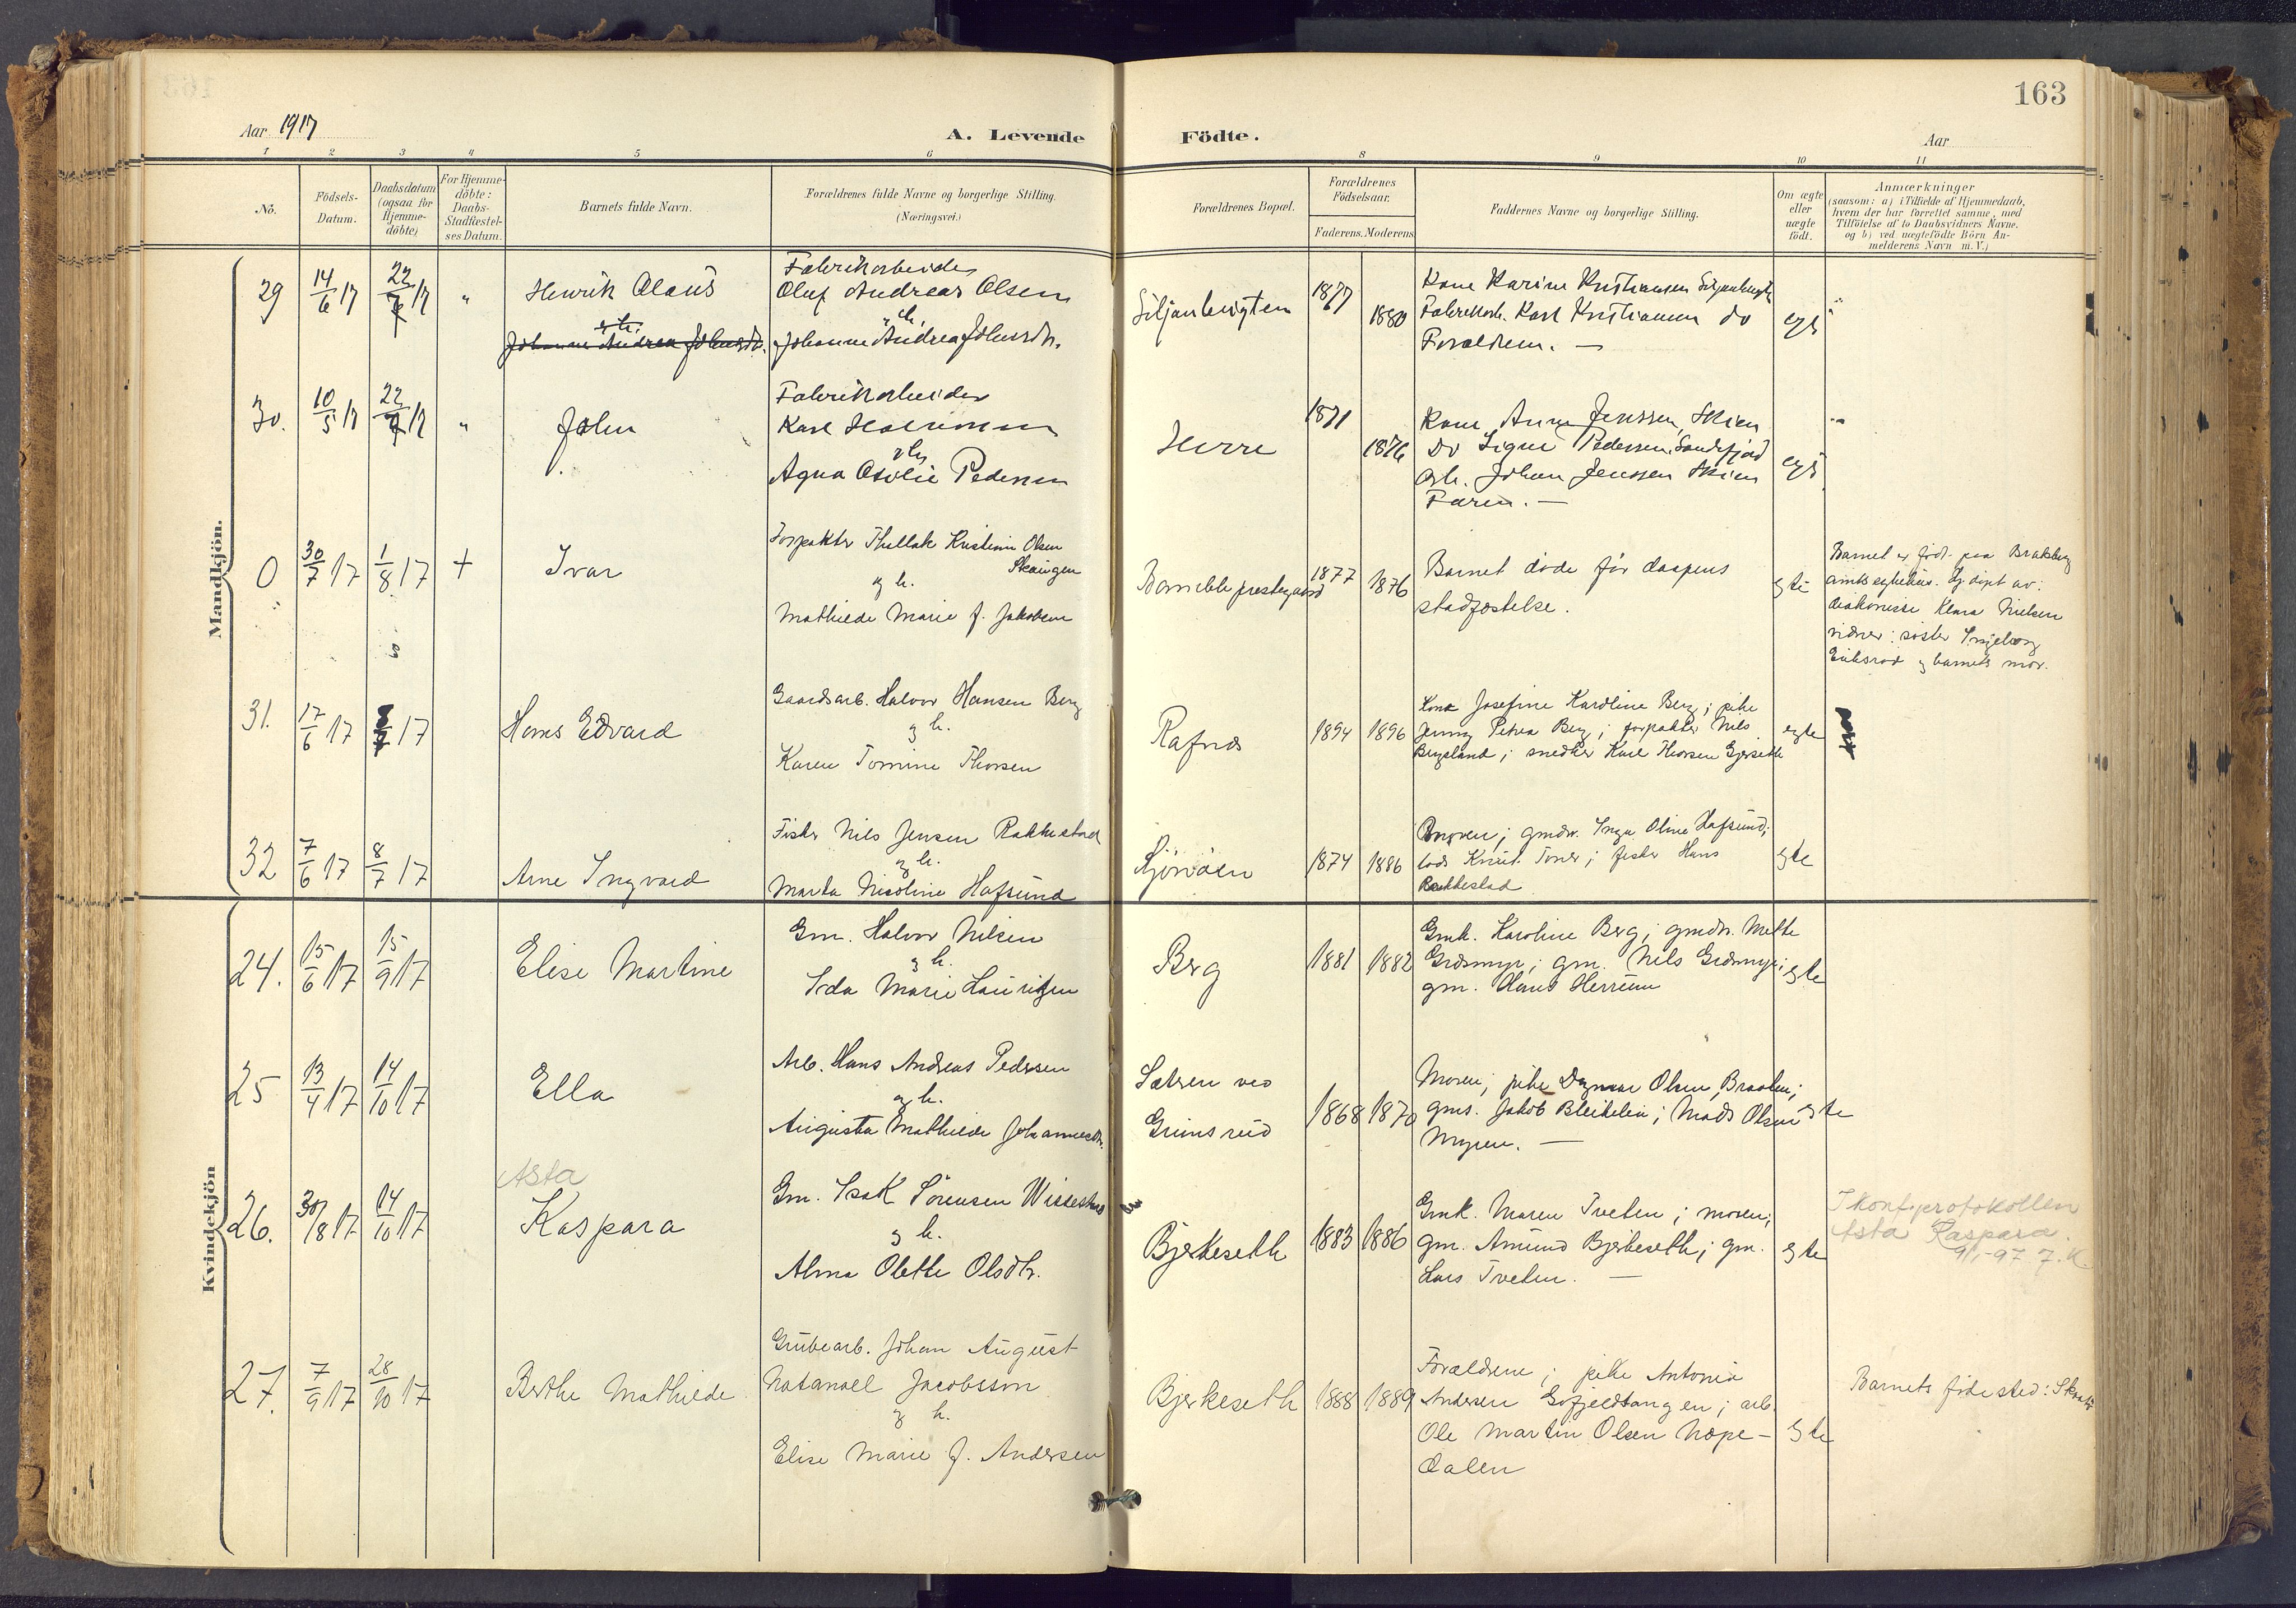 163
Aar 1917
A. Levende Födte.
Aar
1 2 3 4 5 6 8 9 10 11
Nö.
Födsels-Datum.
Daabsdatum (ogsaa for Hjemme-döbte)
For Hjemme-döbte: Daabs-Stadfæstel-ses Datum.
Barnets fulde Navn.
Forældrenes fulde Navne og borgerlige Stilling. (Næringsvei.)
Forældrenes Bopæl.
Forældrenes Födselsaar.
Faderens. Moderens
Faddernes Navne og borgerlige Stilling.
Om ægte eller uægte födt.
Anmærkninger
(saasom: a) i Tilfælde af Hjemmedaab,
hvem der har forrettet samme, med
Tilföielse af to Daabsvidners Navne.
og b) ved uægtefödte Börn An-
melderens Navn m. V.)
Mandkjön.
29 14/6 17 22/7 17 " Henrik Olaus
Johanne Andrea Johnsdtr.
Fabrikarbeider
Oluf Andreas Olsen
og h.
Johanne Andrea Johnsdtr.
Siljanbugten 1877 1880
Kone Karine Kristiansen Siljanbugt
Fabrikarb. Karl Kristiansen do
Forældrene. —
egte "
30. 10/5 17 22/7 17 " John
Fabrikarbeider
Karl
og h.
Agna Pedersen
Herre 1871 1876
Kone Anna Jenssen, Skien
Do Signe Pedersen, Sandefjord
Arb. Johan Jenssen Skien
Faren. —
egte "
0 30/7 17 1/8 17 + Ivar
Forpakter Thellak Kristian Olsen
Skaugen
og h.
Mathilde Marie f. Jakobsen
Bamble prestegaard 1877 1876
Barnet døde før daapens
stadfæstelse.
egte
Barnet er født paa Brataberg
amtssykehus. Og døpt av:
diakonisse Klara Nielsen
vidner: søster Ingeborg
Eriksrød og barnets mor.
31. 17/6 17 8/7 17 Hans Edvard
Gaardsarb. Halvor Hansen Berg
og h.
Karen Tomine Thorsen
Rafnes 1894 1896
Kone Josefine Karoline Berg; pike
Jenny Petra Berg; forpakter Nils
Bergsland; snedker Karl Thorsen Gjerseth
egte
32 7/6 17 8/7 17 Arne Ingvard
Fisker Nils Jensen Rakkestad
og h.
Marta Nicoline Hafsund
1874 1886
Moren; gmdr. Inga Oline Hafsund;
lods Knut Toner; fisker Hans
Rakkestad
egte
Kvindekjön
24. 15/6 17 15/9 17 Elise Martine
Gm. Halvor Nilsen
og h.
Ida Marie Lauritzen
Berg 1881 1882
Gmk. Karoline Berg; gmdr. Mette
Græsmyr; gm. Nils Græsmyr;
gm. Hans Herrum
egte
25 13/4 17 14/10 17 Ella
Arb. Hans Andreas Pedersen
og h.
Augusta Mathilde Johannesdtr.
Sætren ved
Grimsrud
1868 1870
Moren; pike Dagmar Olsen, Braaten;
gms. Jakob Bleikelia; Mads Olsen
Myren. —
egte
Asta
26. 30/8 17 14/10 17 Kaspara
Gm. Isak Sørensen Wissestad
og h.
Alma Olette Olsdtr.
Bjerkeseth 1883 1886
Gmk. Maren Tveten; moren;
gm. Amund Bjerkeseth; gm.
Lars Tveten. —
egte
I konf.protokollen
Asta Kaspara.
9/1-97 J.K.
27. 7/9 17 28/10 17 Berthe Mathilde
Grubearb. Johan August
Natanael Jacobsson
og h.
Elise Marie f. Andersen
Bjerkeseth 1888 1889
Forældrene; pike Antonia
Andersen Gofjeldtangen; arb.
Ole Martin Olsen Nope-
dalen
egte
Barnets fødested: